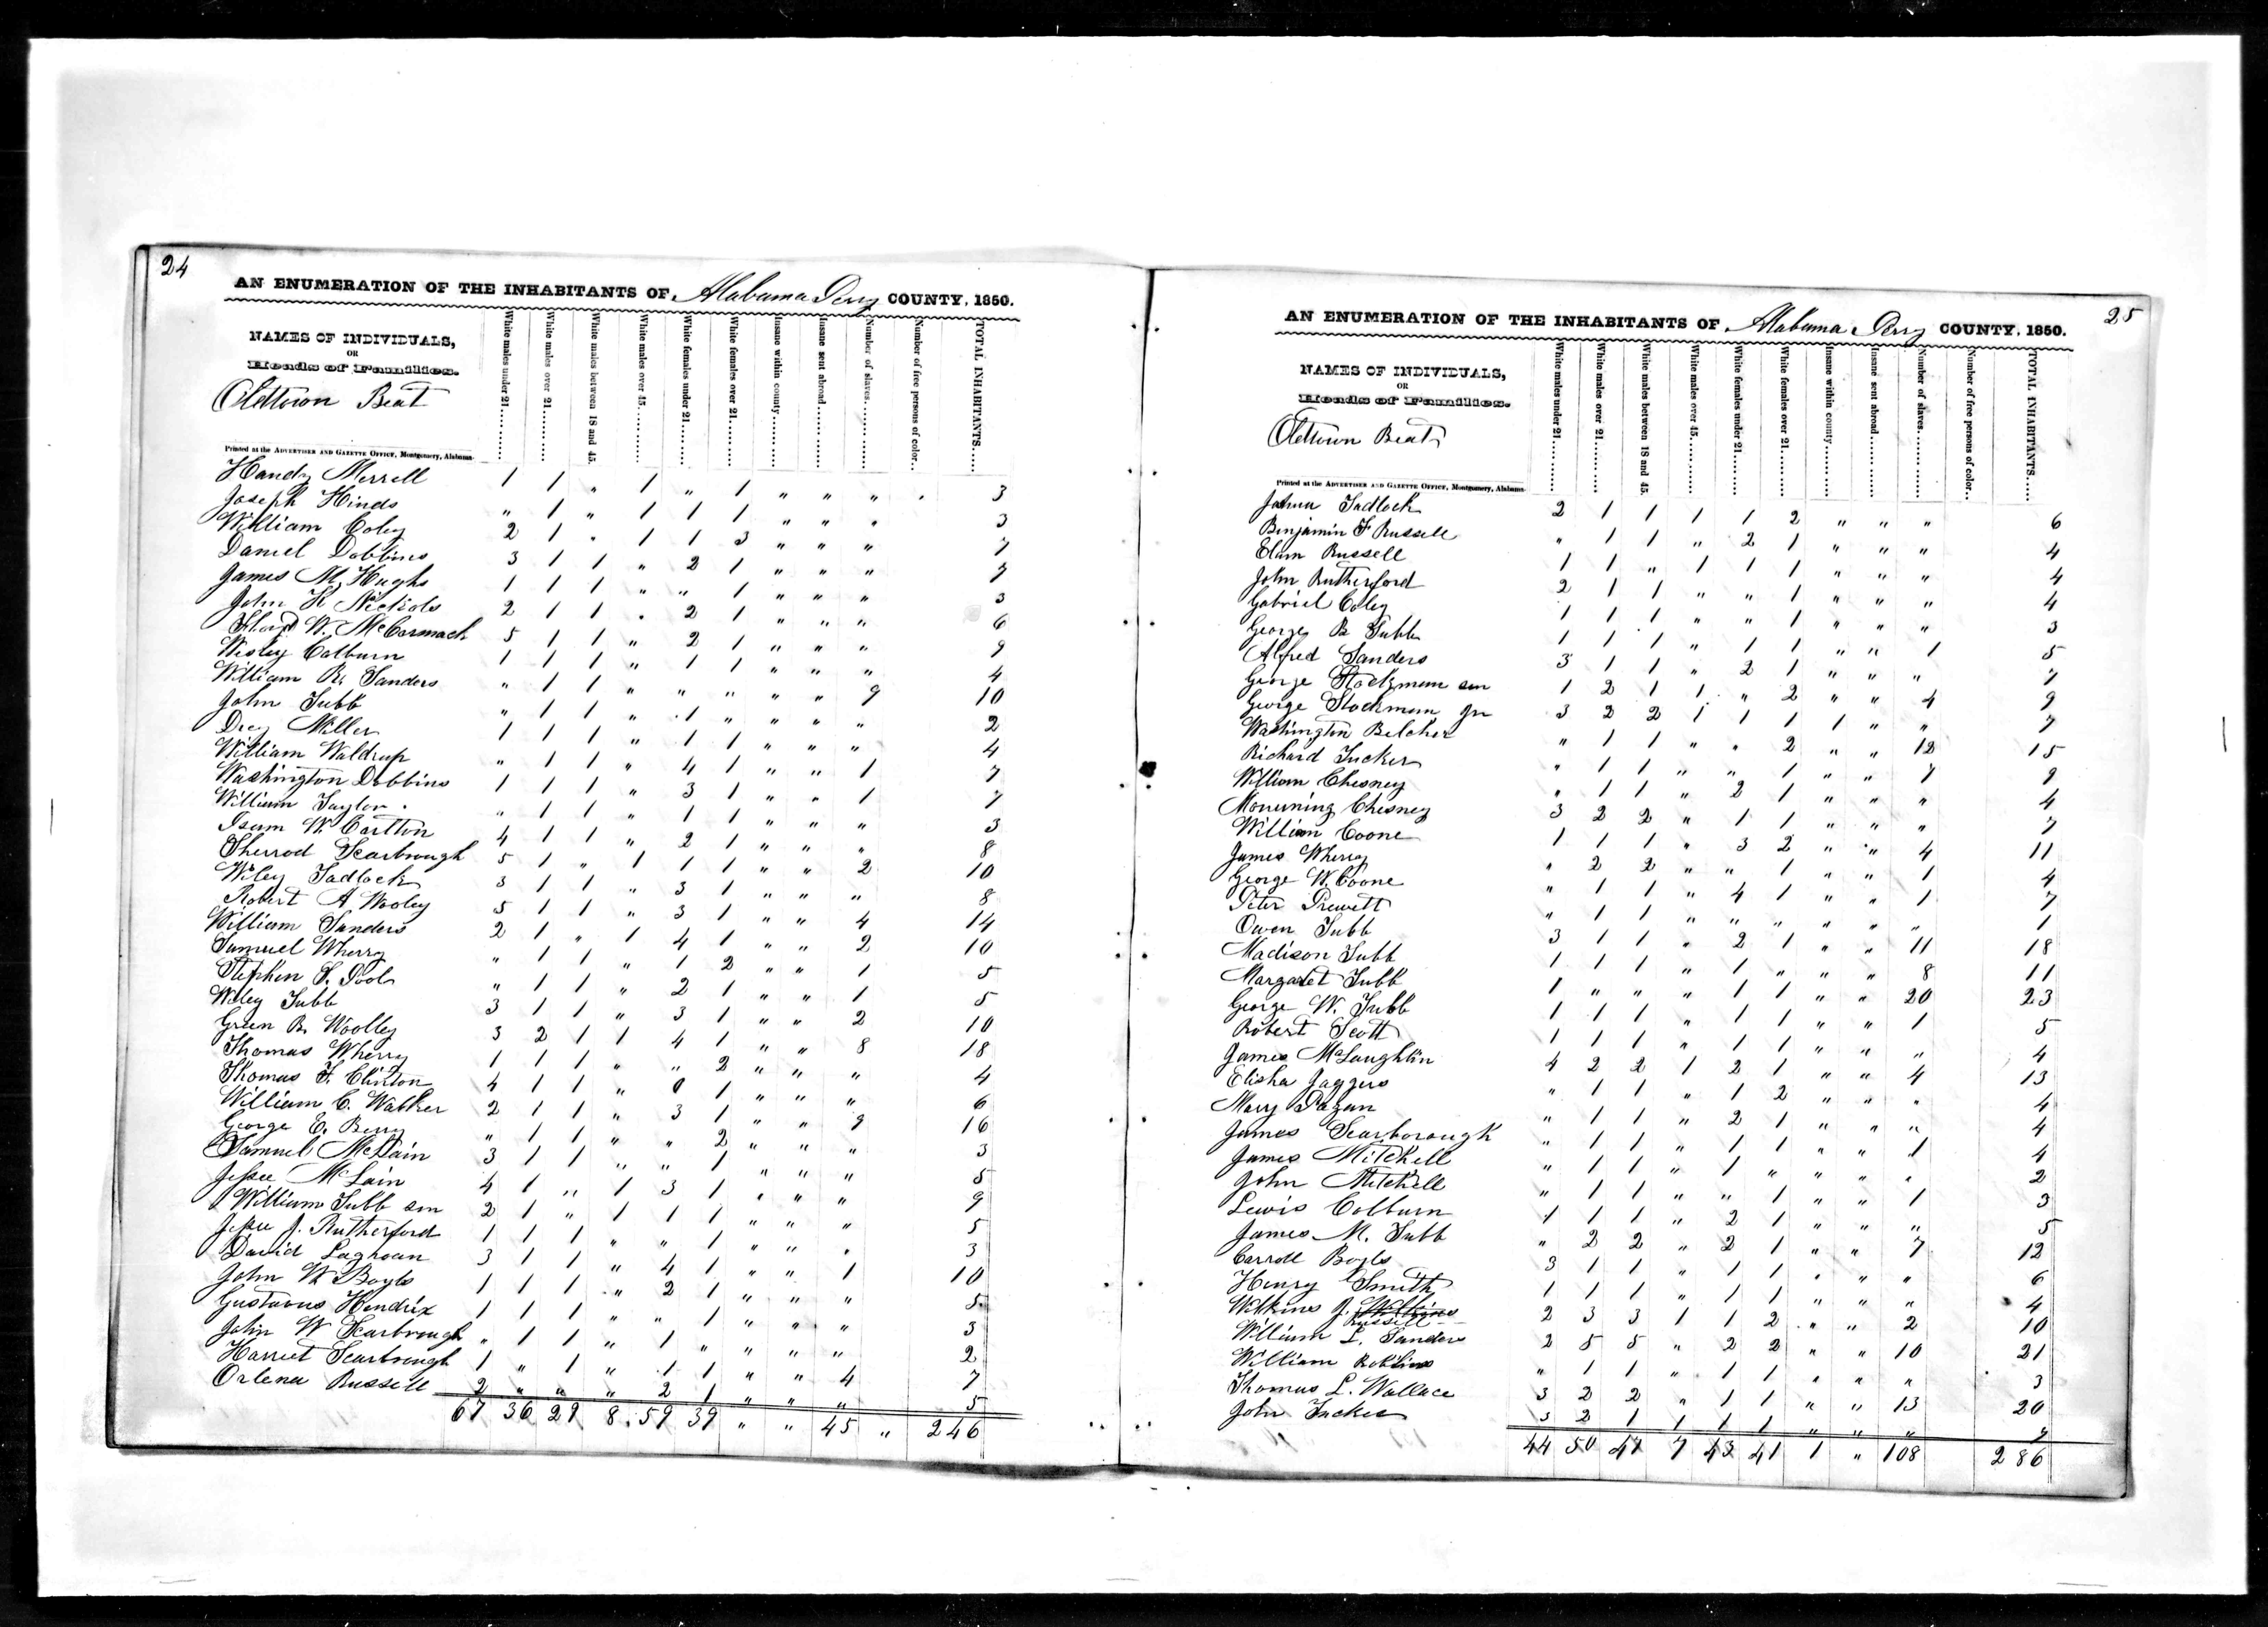 24
AN ENUMERATION OF THE INHABITANTS OF Alabama Perry COUNTY, 1850.
NAMES OF INDIVIDUALS,
OR
Heads of Families.
Oldtown Beat
Printed at the ADVERTISER AND GAZETTE OFFICE, Montgomery, Alabama
White males under 21
White males over 21
White males between 18 and 45
White males over 45
White females under 21
White females over 21
Insane within county
Insane sent abroad
Number of slaves
Number of free persons of color
TOTAL INHABITANTS
Handy Merrell 1 1 " 1 " 1 " " " 3
Joseph Hinds " 1 " 1 1 1 " " " 3
William Coley 2 1 " 1 1 3 " " " 7
Daniel Dobbins 3 1 1 " 2 1 " " " 7
James M. Hughs 1 1 1 " " 1 " " " 3
John K Nichols 2 1 1 " 2 1 " " " 6
W. McCormack 5 1 1 " 2 1 " " " 9
Wesley Colburn 1 1 1 " 1 1 " " " 4
William R. Sanders " 1 1 " " " " " 9 10
John Tubb " 1 1 " 1 " " " " 2
Miller 1 1 1 " 1 1 " " " 4
William Waldrup " 1 1 " 4 1 " " 1 7
Washington Dobbins 1 1 1 " 3 1 " " 1 7
William Taylor " 1 1 " 1 1 " " " 3
Isum W. Carlton 4 1 1 " 2 1 " " " 8
Sherrod Scarbrough 5 1 " 1 1 1 " " 2 10
Wiley Tadlock 3 1 1 " 3 1 " " " 8
Robert A Wooley 5 1 1 " 3 1 " " 4 14
William Sanders 2 1 " 1 4 1 " " 2 10
Samuel Wherry " 1 1 " 1 2 " " 1 5
Stephen F. Pool " 1 1 " 2 1 " " 1 5
Wiley Tubb 3 1 1 " 3 1 " " 2 10
Green B. Woolley 3 2 1 1 4 1 " " 8 18
Thomas Wherry 1 1 1 " " 2 " " " 4
Thomas F. Clinton 4 1 1 " 0 1 " " " 6
William C. Walker 2 1 1 " 3 1 " " 9 16
George E. Berry " 1 1 " " 2 " " " 3
Samuel McLain 3 1 1 " " 1 " " " 5
Jesse McLain 4 1 " 1 3 1 " " " 9
William Tubb sen 2 1 " 1 1 1 " " " 5
Jesse J. Rutherford 1 1 1 " " 1 " " " 3
David 3 1 1 " 4 1 " " 1 10
John W. Boyls 1 1 1 " 2 1 " " " 5
Gustavus Hendrix 1 1 1 " " 1 " " " 3
John W Scarbrough " 1 1 " 1 " " " " 2
Harriet Scarbrough 1 " 1 " 1 1 " " 4 7
Orlena Russell 2 " " " 2 1 " " " 5
67 36 29 8 59 39 " " 45 " 246
25
AN ENUMERATION OF THE INHABITANTS OF Alabama Perry COUNTY, 1850.
NAMES OF INDIVIDUALS,
OR
Heads of Families.
Oldtown Beat
Printed at the ADVERTISER AND GAZETTE OFFICE, Montgomery, Alabama
White males under 21
White males over 21
White males between 18 and 45
White males over 45
White females under 21
White females over 21
Insane within county
Insane sent abroad
Number of slaves
Number of free persons of color
TOTAL INHABITANTS
Tadlock 2 1 1 1 1 2 " " " 6
Benjamin F Russell " 1 1 " 2 1 " " " 4
Elam Russell 1 1 " 1 1 1 " " " 4
John Rutherford 2 1 1 " " 1 " " " 4
Gabriel Coley 1 1 1 " " 1 " " " 3
George B Tubb 1 1 1 " 1 1 " " 1 5
Alfred Sanders 3 1 1 " 2 1 " " " 7
George Stockman sen 1 2 1 1 " 2 " " 4 9
George Stockman Jun 3 2 2 1 1 1 1 " " 7
Washington Belcher " 1 1 " " 2 " " 12 15
Richard Tucker " 1 1 " " 1 " " 7 9
William Chesney " 1 1 " 2 1 " " " 4
Mourning Chesney 3 2 2 " 1 1 " " " 7
William Coone 1 1 1 " 3 2 " " 4 11
James Wherry " 2 2 " " 1 " " 1 4
George W. Coone " 1 1 " 4 1 " " 1 7
Peter Prewett " 1 1 " " " " " " 1
Owen Tubb 3 1 1 " 2 1 " " 11 18
Madison Tubb 1 1 1 " 1 " " " 8 11
Margaret Tubb 1 " " " 1 1 " " 20 23
George W. Tubb 1 1 1 " 1 1 " " 1 5
Robert Scott 1 1 1 " 1 1 " " " 4
James McLaughlin 4 2 2 1 2 1 " " 4 13
Elisha Jaggers " 1 1 " 1 2 " " " 4
Mary " 1 1 " 2 1 " " " 4
James Scarborough " 1 1 " 1 1 " " 1 4
James Mitchell " 1 1 " 1 " " " " 2
John Mitchell " 1 1 " " 1 " " 1 3
Lewis Colburn 1 1 1 " 2 1 " " " 5
James M. Tubb " 2 2 " 2 1 " " 7 12
Carroll Boyls 3 1 1 " 1 1 " " " 6
Henry Smith 1 1 1 " 1 1 " " " 4
Wilkins J. Russell 2 3 3 1 1 2 " " 2 10
William L. Sanders 2 5 5 " 2 2 " " 10 21
William Robbins " 1 1 " 1 1 " " " 3
Thomas L. Wallace 3 2 2 " 1 1 " " 13 20
John Tucker 3 2 1 1 1 1 " " " 7
44 50 47 7 43 41 1 " 108 286